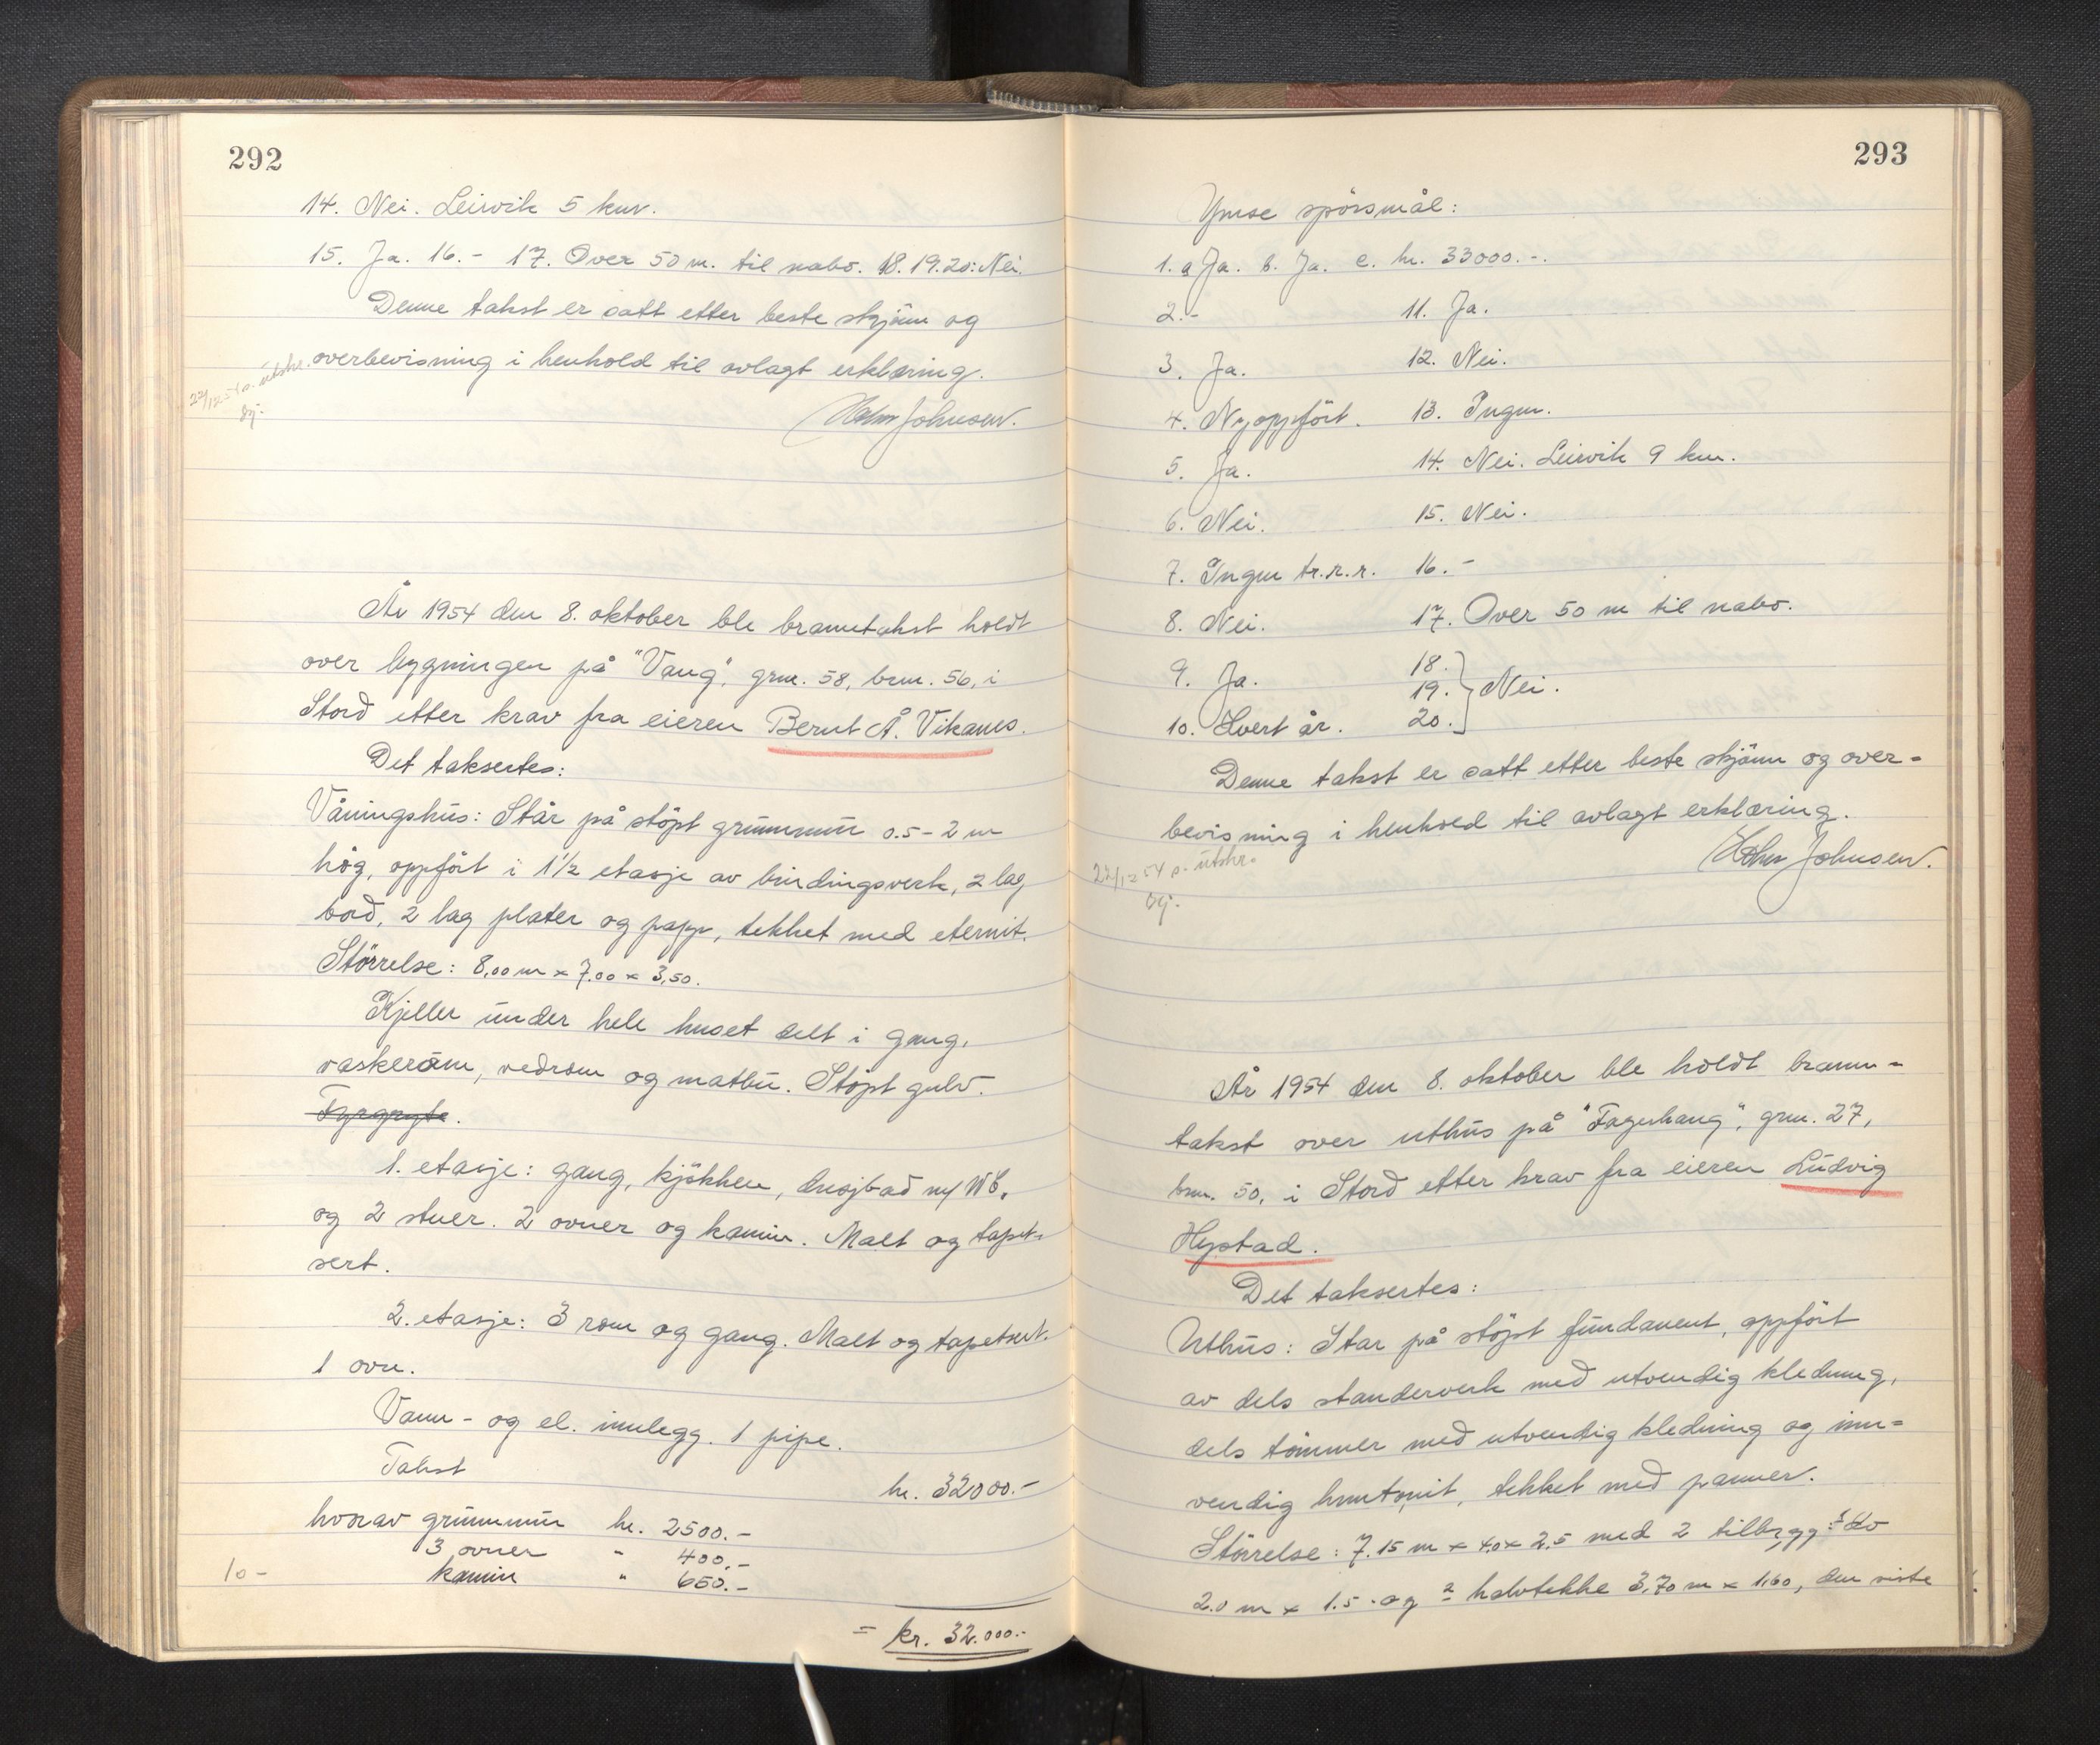 292
14. Nei. Leirvik 5 km.
15. Ja. 16.- 17. Over 50 m. til nabo. 18.19.20: Nei.
Denne takst er satt etter beste skjönn og
overbevisning i henhold til avlagt erklæring.
22/12-54 s. utskr.
Johnsen.
År 1954 den 8. oktober ble branntakst holdt
over bygningen på "Vang", grn. 58, brn. 56, i
Stord etter krav fra eieren Bernt Å. Vikanes.
Det taksertes:
Våningshus: Står på stöpt grunnmur 0.5 - 2 m
høg, oppfört i 1 1/2 etasje av bindingsverk, 2 lag
bord, 2 lag plater og papp, tekket med eternit.
Störrelse: 8,00 m x 7,00 x 3,50.
Kjeller under hele huset delt i gang,
vaskerom, vedrom og matbu. Stöpt gulv.
Fyrgryte.
1. etasje: gang, kjökken, dusjbad m/ WC.
og 2 stuer. 2 ovner og kamin. Malt og tapet-
sert.
2. etasje: 3 rom og gang. Malt og tapetsert.
1 ovn.
Vann- og el. innlegg. 1 pipe.
Takst kr. 32000.-
hvorav grunnmur kr. 2500.-
3 ovner " 400.-
10 - kamin " 650.-
= kr. 32.000.-
293
Ymse spörsmål:
1. a Ja. b. Ja. c. kr. 33000.-.
2.- 11. Ja.
3. Ja. 12. Nei.
4. Nyoppfört. 13. Ingen.
5. Ja. 14. Nei. Leirvik 9 km.
6. Nei. 15. Nei.
7. Ingen tr.r.r. 16.-
8. Nei. 17. Over 50 m til nabo.
9. Ja. 18.
19. Nei.
10. Hvert år. 20.
Denne takst er satt etter beste skjönn og over-
bevisning i henhold til avlagt erklæring.
Johnsen.
22/12 54 s. utskr.
År 1954 den 8. oktober ble holdt brann-
takst over uthus på "Fagerhaug", grn. 27,
brn. 50, i Stord etter krav fra eieren Ludvig
Hystad.
Det taksertes:
Uthus: Står på stöpt fundament, oppfört
av dels standerverk med utvendig kledning,
dels tömmer med utvendig kledning og inn-
vendig huntonit, tekket med panner.
Störrelse: 7.15 m x 4.0 x 2.5 med 2 tilbygg: 1 do
2.0 m x 1.5 og 2 halvtekke 3,70 m x 1,60, den siste